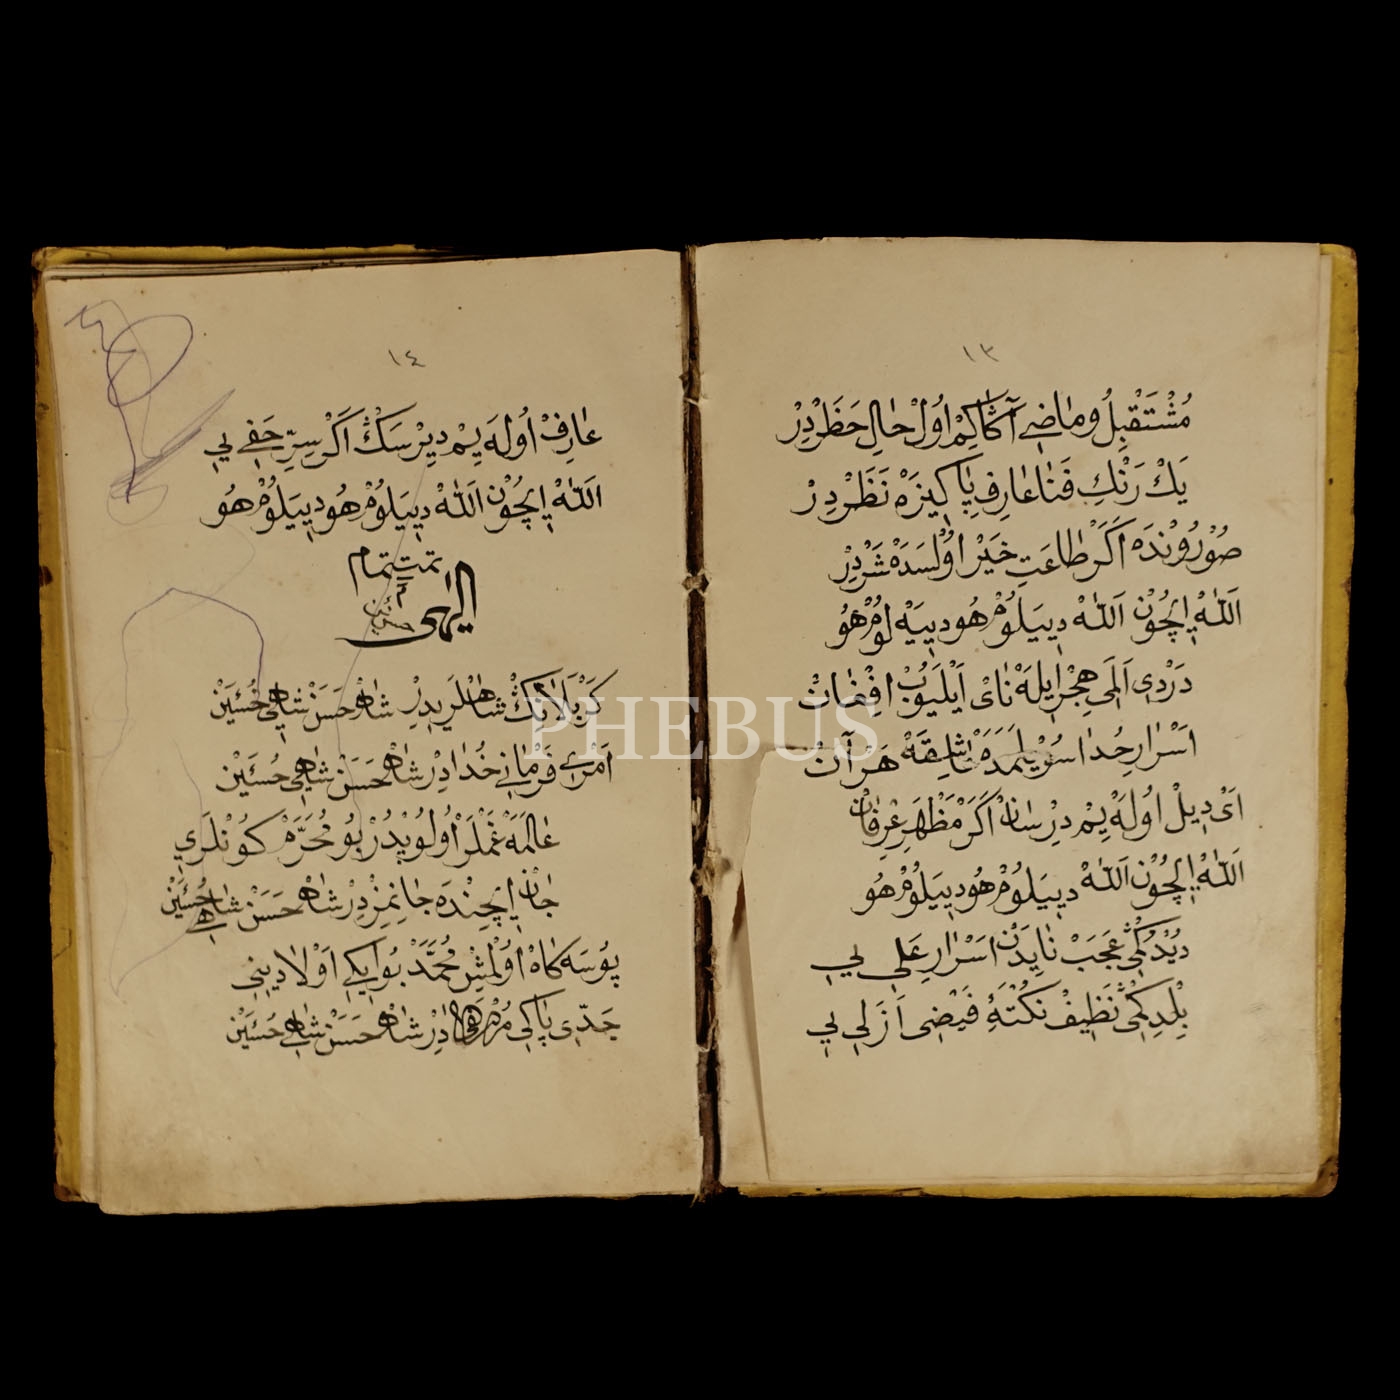 ١٣
مُسْتَقْبِلُ و مَاضِي آكَا كِمْ اُولْ حَالِ حَظَرْدِرْ
يَكْ رَنْكِ فَنَا عَارِفِ پَاكِيزَهْ نَظَرْدِرْ
صُوْرُونْدَه اَكَرْ طَاعَتِ خَيْر اُولْسَدَه شَرْدِرْ
اَللّٰهْ اِيچُوْن اَللّٰهْ دِييَلُومْ هُو دِييَه لُومْ هُو
دَرْدِى اَلَمِى هِجْر اِيلَه نَاىْ اَيْلَيُوبْ افْغَانْ
اَسْرَارِ خُدَا سُوْيلَمَدَه عَاشِقَه هَرْ آنْ
اَىْ دِيلْ اُولَه يِمْ دِرْسَانْ اَكَرْ مَظْهَرِ عِرْفَانْ
اَللّٰهْ اِيچُوْن اَللّٰهْ دِييَلُومْ هُو دِييَلُومْ هُو
دُيْدُكمِى عَجَبْ نَايِدَنْ اَسْرَارِ عَلِى يِى
بِلْدِكمِى نَظِيفْ نَكْتَهٔ فَيْضِى اَزَلِى يِى
١٤
عَارِفْ اُولَه يِمْ دِيرْسَكْ اَكَرْ سِرِّ خَفِى يِى
اَللّٰهْ اِيچُوْن اَللّٰهْ دِييَلُومْ هُو دِييَلُومْ هُو
تمت تمام
الهى
كَرْبَلَانِكْ شَاهْلَرِيدِرْ شَاهْ حَسَنْ شَاهِى حُسَيْنْ
اَمْرِى فَرْمَانِى خُدَادِرْ شَاهْ حَسَنْ شَاهِى حُسَيْنْ
عَالَمَه غَمْلَرْ اُولُويْدُرْ بُو مُحَرَّمْ كُونْلَرِى
جَانْ اِيچِنْدَه جَانِمِزْدِرْ شَاهْ حَسَنْ شَاهِى حُسَيْنْ
پُوسَه كَاهْ اُولْمِشْ مُحَمَّدْ بُو اِيكِى اَوْلَادِينِى
جَدِّى پَاكِى دِرْ شَاهْ حَسَنْ شَاهِى حُسَيْنْ
PHEBUS